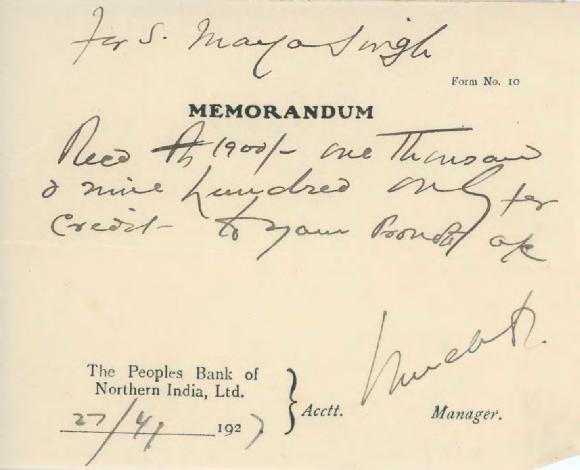 For S. Maya Singh
Form No. 10
MEMORANDUM
Recd Rs 1900/- one Thousand
& nine hundred only for
Credit to your a/c
The Peoples Bank of
Northern India, Ltd.
27/4/ 1927
Acctt. Manager.